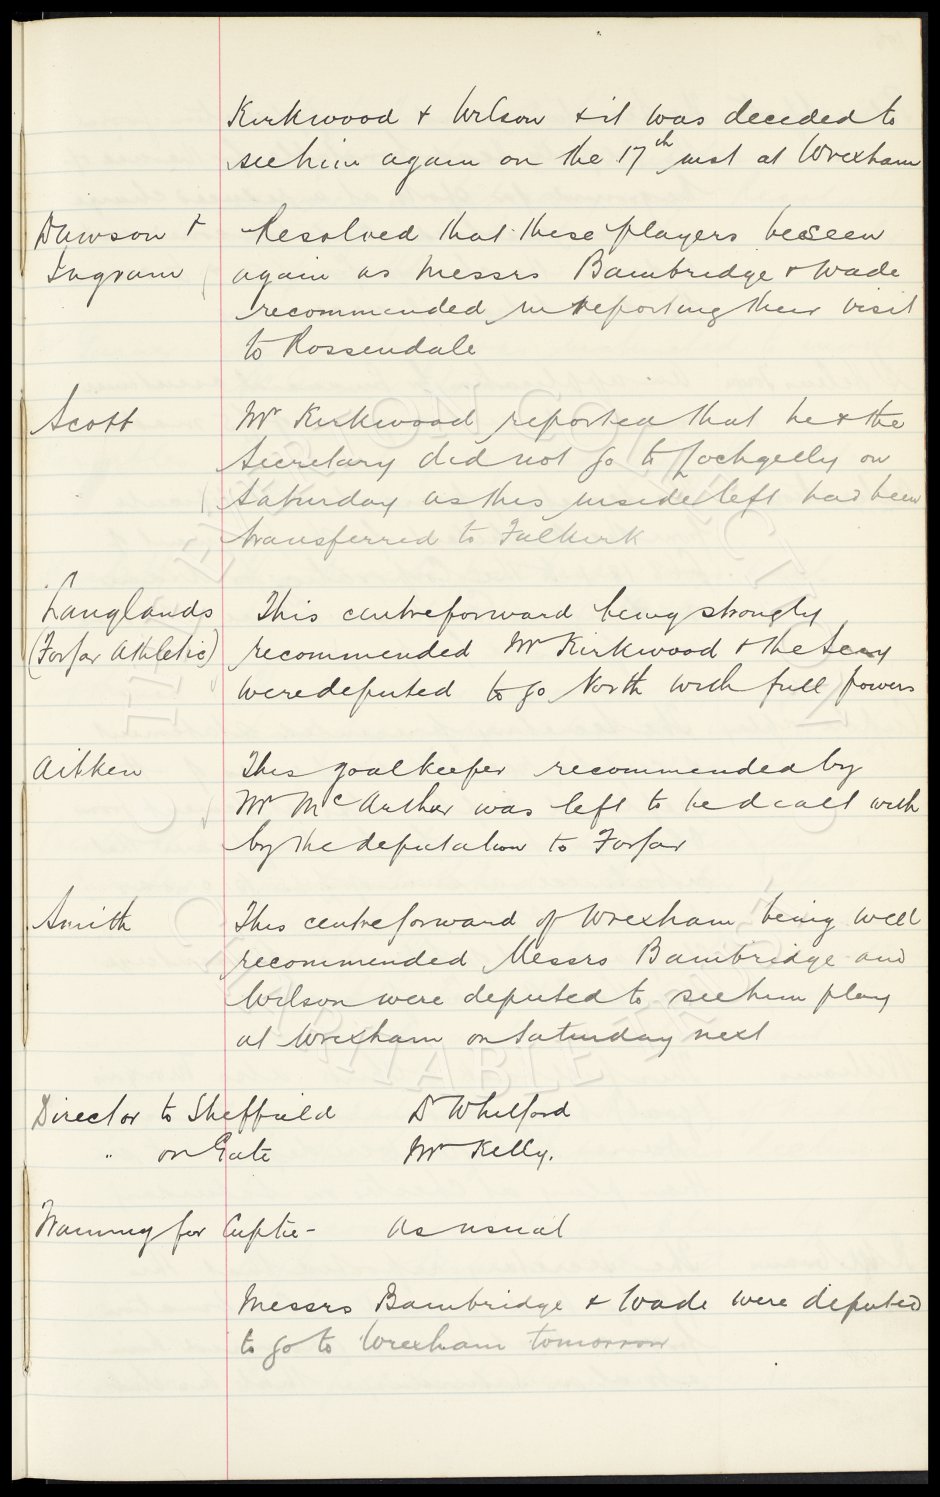 Kirkwood & Wilson & it was decided to
see him again on the 17th inst at Wrexham
Dawson & Resolved that these players be seen
Ingram again as Messrs Bambridge & Wade
recommended in reporting their visit
to Rossendale
Scott Mr Kirkwood reported that he & the
Secretary did not go to Lochgelly on
Saturday as this inside left had been
transferred to Falkirk
Langlands This centreforward being strongly
(Forfar Athletic) recommended Mr Kirkwood & the Secy
were deputed to go North with full powers
Aitken This goalkeeper recommended by
Mr McArthur was left to be dealt with
by the deputation to Forfar
Smith This centreforward of Wrexham being well
recommended Messrs Bambridge and
Wilson were deputed to see him play
at Wrexham on Saturday next
Director to Sheffield Dr Whitford
" on Gate Mr Kelly.
Training for Cuptie - As usual
Messrs Bambridge & Wade were deputed
to go to Wrexham tomorrow
THE EVERTON COLLECTION CHARITABLE TRUST